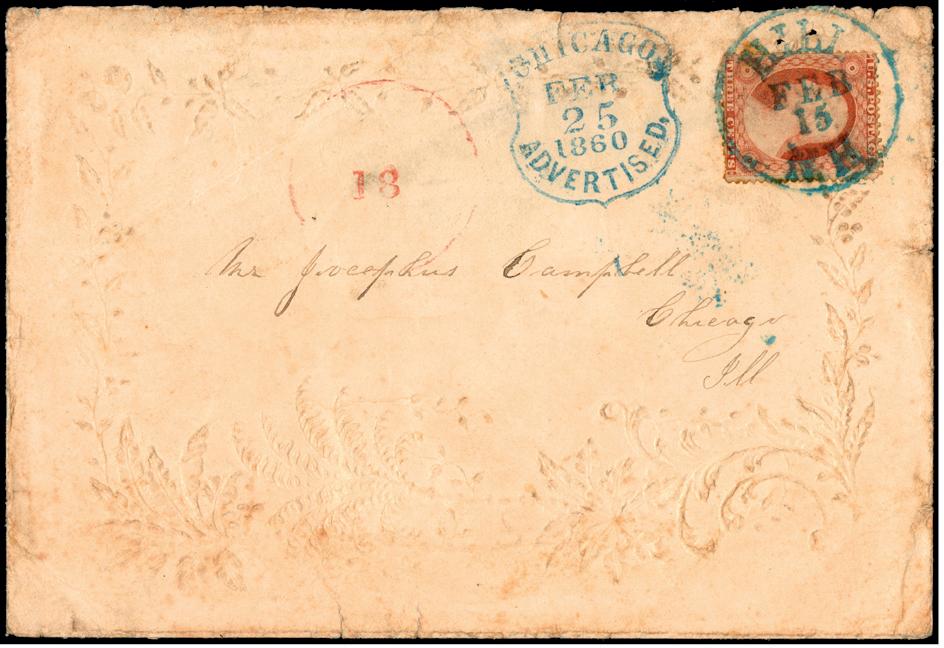 CHICAGO
FEB
25
1860
ADVERTISED.
HILL
FEB
15
N.H
THREE CENTS
U.S. POSTAGE
18
Mr Josephus Campbell
Chicago
Ill